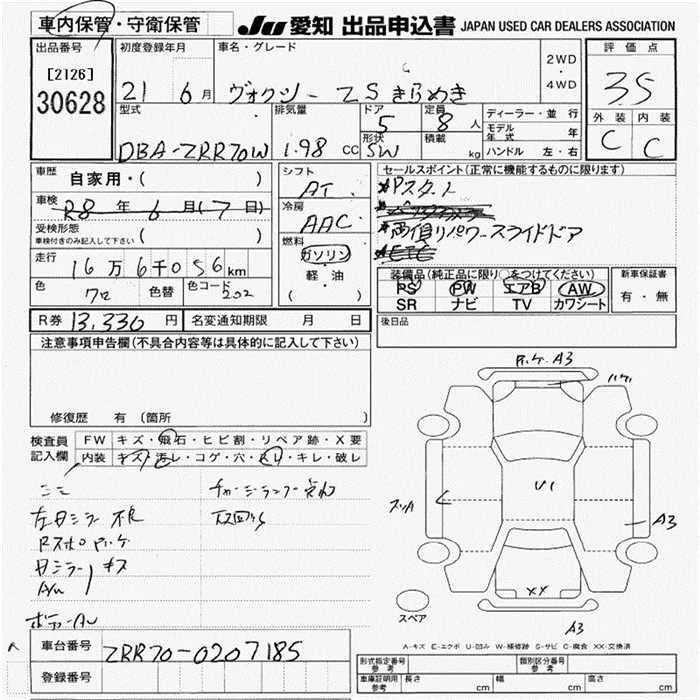 車内保管・守衛保管
JU 愛知 出品申込書 JAPAN USED CAR DEALERS ASSOCIATION
出品番号
[2126]
30628
初度登録年月
21 6月
車名・グレード
ヴォクシー ZS きらめき
2WD
・
4WD
評価点
3.5
外装 内装
C C
型式
DBA-ZRR70W
排気量
1.98 CC
ドア
5
形状
SW
定員
8 人
積載
kg
ディーラー・並行
モデル年式 年
ハンドル 左・右
車歴
自家用・( )
車検
R8年6月(7日)
受検形態
車検付きのみ記入して下さい ( )
走行
16万6千056km
色
クロ
色替
色コード
202
シフト
AT
冷房
AAC
燃料
ガソリン
軽・油
( )
セールスポイント(正常に機能するものに限ります)
*Pスタート
*両側リパワースライドドア
*ETC
装備品(純正品に限り○をつけてください)
PS PW エアB AW
SR ナビ TV カワシート
新車保証書
有・無
R券 13,330円
名変通知期限 月 日
後日品
注意事項申告欄(不具合内容等は具体的に記入して下さい)
修復歴 有 (箇所 )
検査員
記入欄
FW キズ・飛石・ヒビ割・リペア跡・X要
内装 キズ・汚レ・コゲ・穴・スレ・キレ・破レ
左日ミラー不良
ミラーキズ
A3
U1
A3
XX
A3
スペア
A-キズ E-エクボ U-凹み W-補修跡 S-サビ C-腐食 XX-交換済
車台番号
ZRR70-0207185
登録番号
形式指定番号
参考
類別区分番号
参考
車庫証明用
参考
長さ cm 幅 cm 高さ cm